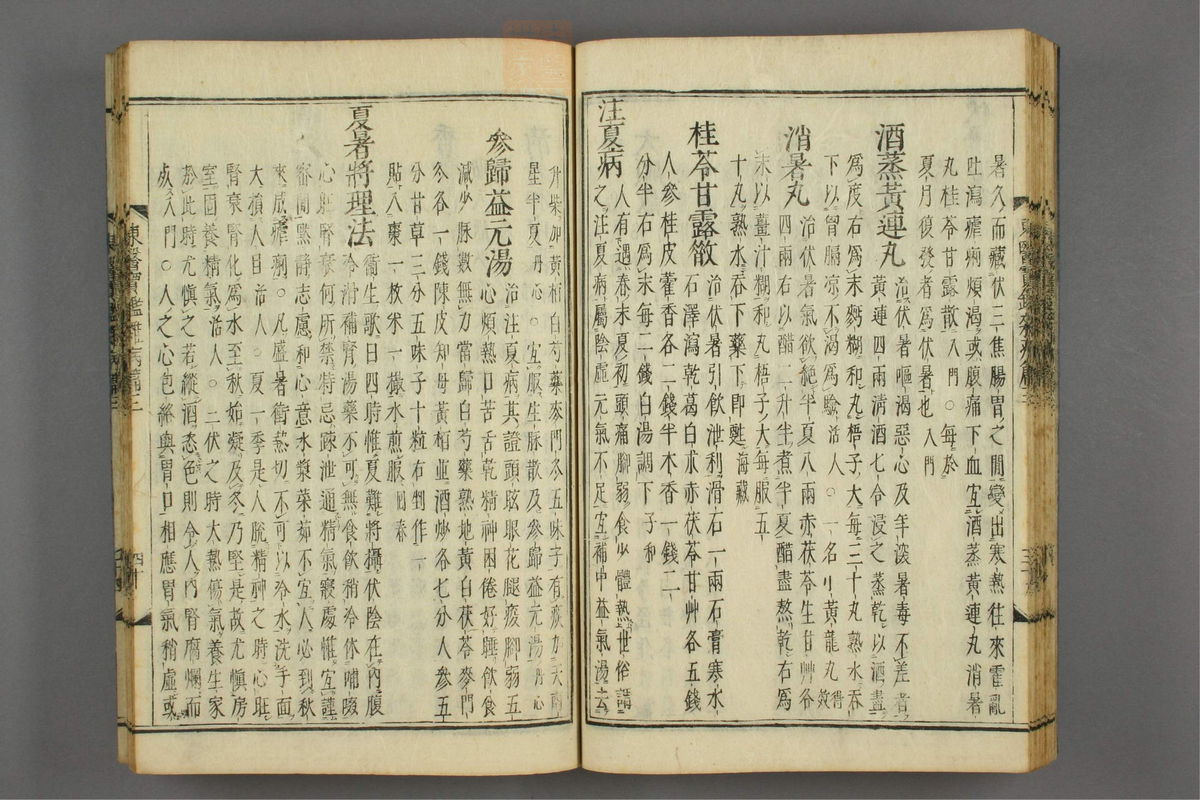 暑久而藏伏三焦腸胃之間變出寒熱往來霍亂
吐瀉瘧痢煩渴或腹痛下血宜酒蒸黃連丸消暑
丸桂苓甘露散入門○每於
夏月復發者爲伏暑也入門
酒蒸黃連丸治伏暑嘔渴惡心及年深暑毒不差者
黃連四兩清酒七合浸之蒸乾以酒盡
爲度右爲末麪糊和丸梧子大每三十丸熟水吞
下以胃膈涼不渴爲驗活人○一名小黃龍丸得效
消暑丸治伏暑氣欲絶半夏八兩赤茯苓生甘艸各
四兩右以醋二升半煮半夏醋盡熬乾右爲
末以薑汁糊和丸梧子大每服五
十丸熟水吞下藥下即甦海藏
桂苓甘露散治伏暑引飮泄利滑石一兩石膏寒水
石澤瀉乾葛白朮赤茯苓甘艸各五錢
人參桂皮藿香各二錢半木香一錢二
分半右爲末每二錢白湯調下子和
注夏病人有遇春末夏初頭痛腳弱食少體熱世俗謂
之注夏病屬陰虛元氣不足宜補中益氣湯去
升柴加黃柏白芍藥麥門冬五味子有痰加天南
星半夏丹心○宜服生脉散及參歸益元湯丹心
參歸益元湯治注夏病其證頭眩眼花腿痠腳弱五
心煩熱口苦舌乾精神困倦好睡飮食
減少脉數無力當歸白芍藥熟地黃白茯苓麥門
冬各一錢陳皮知母黃栢並酒炒各七分人參五
分甘草三分五味子十粒右剉作一
貼入棗一枚米一撮水煎服回春
夏暑將理法衛生歌曰四時惟夏難將攝伏陰在內腹
冷滑補腎湯藥不可無食飮稍冷休哺啜
心旺腎衰何所禁特忌踈泄通精氣寢處惟宜謹
密間默靜志慮和心意氷漿菜茹不宜人必到秋
來成瘧痢○凡盛暑衝熱切不可以冷水洗手面
大損人目活人○夏一季是人脫精神之時心旺
腎衰腎化爲水至秋始凝及冬乃堅是故尤愼房
室固養精氣活人○二伏之時大熱傷氣養生家
於此時尤愼之若縱酒恣色則令人內腎腐爛而
死入門○人之心包絡與胃口相應胃氣稍虛或